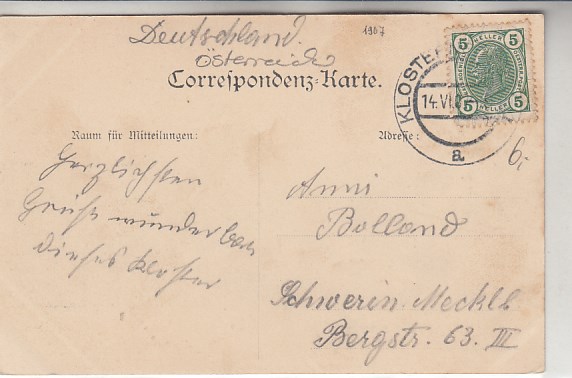 Deutschland.
1907
Österreich
Correspondenz-Karte.
5 HELLER 5
5 HELLER 5
KLOSTE
14.VI.
a
Raum für Mitteilungen:
Adresse:
6,-
Herzlichsten
Gruß wunderbar
dieses Kloster
Anni
Bolland
Schwerin Meckle.
Bergstr. 63. III